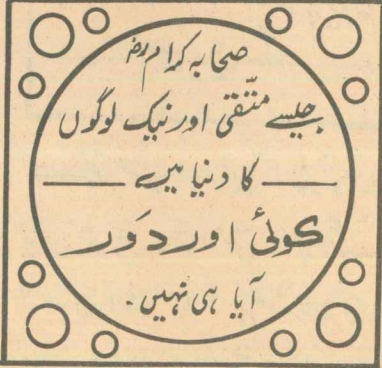 صحابہ کرام رضؓ
جیسے متّقی اور نیک لوگوں
کا دنیا میں
کوئی اور دَور
آیا ہی نہیں۔